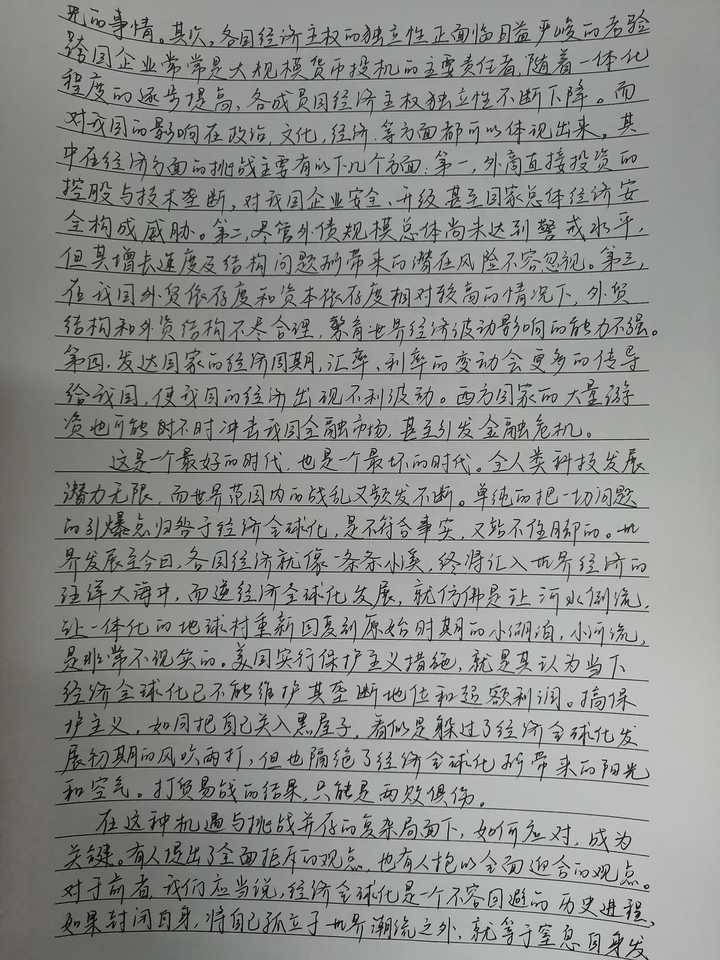 光的事情。其次,各国经济主权的独立性正面临日益严峻的考验
跨国企业常常是大规模货币投机的主要责任者,随着一体化
程度的逐步提高,各成员国经济主权独立性不断下降。而
对我国的影响在政治,文化,经济,等方面都可以体现出来。其
中在经济方面的挑战主要有以下几个方面:第一,外商直接投资的
控股与技术垄断,对我国企业安全、升级甚至国家总体经济安
全构成威胁。第二,尽管外债规模总体尚未达到警戒水平,
但其增长速度及结构问题所带来的潜在风险不容忽视。第三,
在我国外贸依存度和资本依存度相对较高的情况下,外贸
结构和外资结构不尽合理,警育世界经济波动影响的能力不强。
第四,发达国家的经济周期,汇率、利率的变动会更多的传导
给我国,使我国的经济出现不利波动。西方国家的大量游
资也可能时不时冲击我国金融市场,甚至引发金融危机。
这是一个最好的时代,也是一个最坏的时代。全人类科技发展
潜力无限,而世界范围内的战乱又频发不断。单纯的把一切问题
的引爆点归咎于经济全球化,是不符合事实,又站不住脚的。世
界发展至今日,各国经济就像一条条小溪,终将汇入世界经济的
汪洋大海中,而逆经济全球化发展,就仿佛是让河水倒流,
让一体化的地球村重新回复到原始时期的小湖泊,小河流,
是非常不现实的。美国实行保护主义措施,就是其认为当下
经济全球化已不能维护其垄断地位和超额利润。搞保
护主义,如同把自己关入黑屋子,看似是躲过了经济全球化发
展初期的风吹雨打,但也隔绝了经济全球化所带来的阳光
和空气。打贸易战的结果,只能是两败俱伤。
在这种机遇与挑战并存的复杂局面下,如何应对,成为
关键。有人提出了全面拒斥的观点,也有人抱以全面迎合的观点。
对于前者,我们应当说,经济全球化是一个不容回避的历史进程,
如果封闭自身,将自己孤立于世界潮流之外,就等于窒息自身发